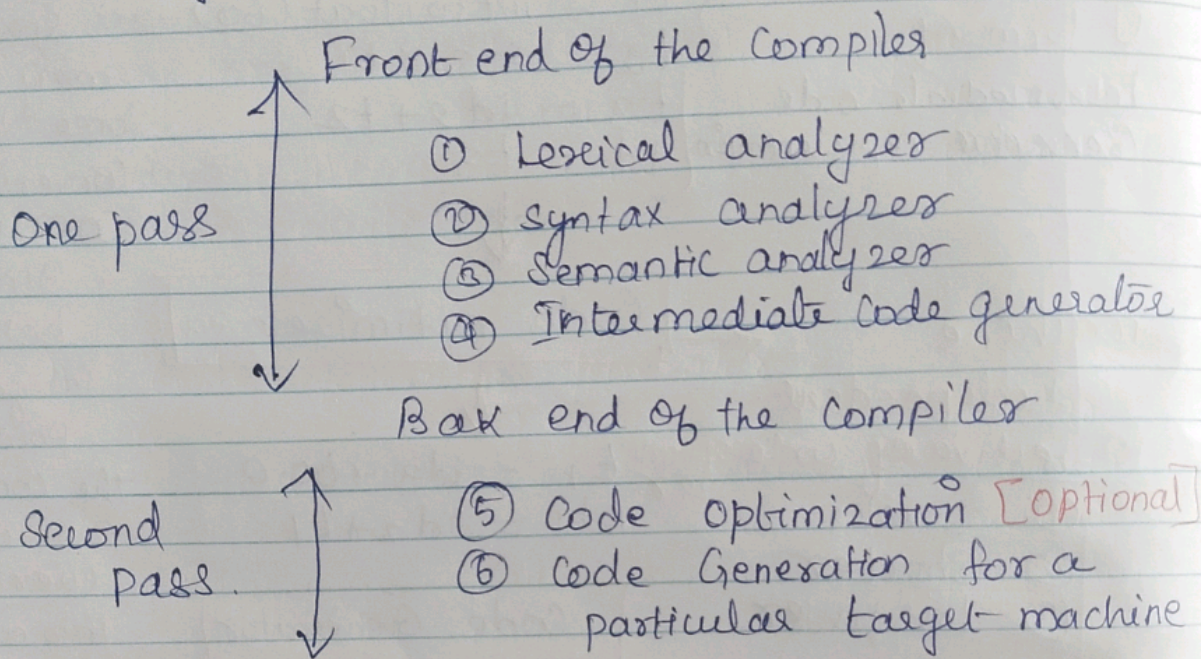 Front end of the Compiler
① Lexical analyzer
One pass
② Syntax analyzer
③ Semantic analyzer
④ Intermediate Code generator
Bak end of the Compiler
⑤ Code Optimization [optional]
Second
pass.
⑥ Code Generation for a
particular target machine